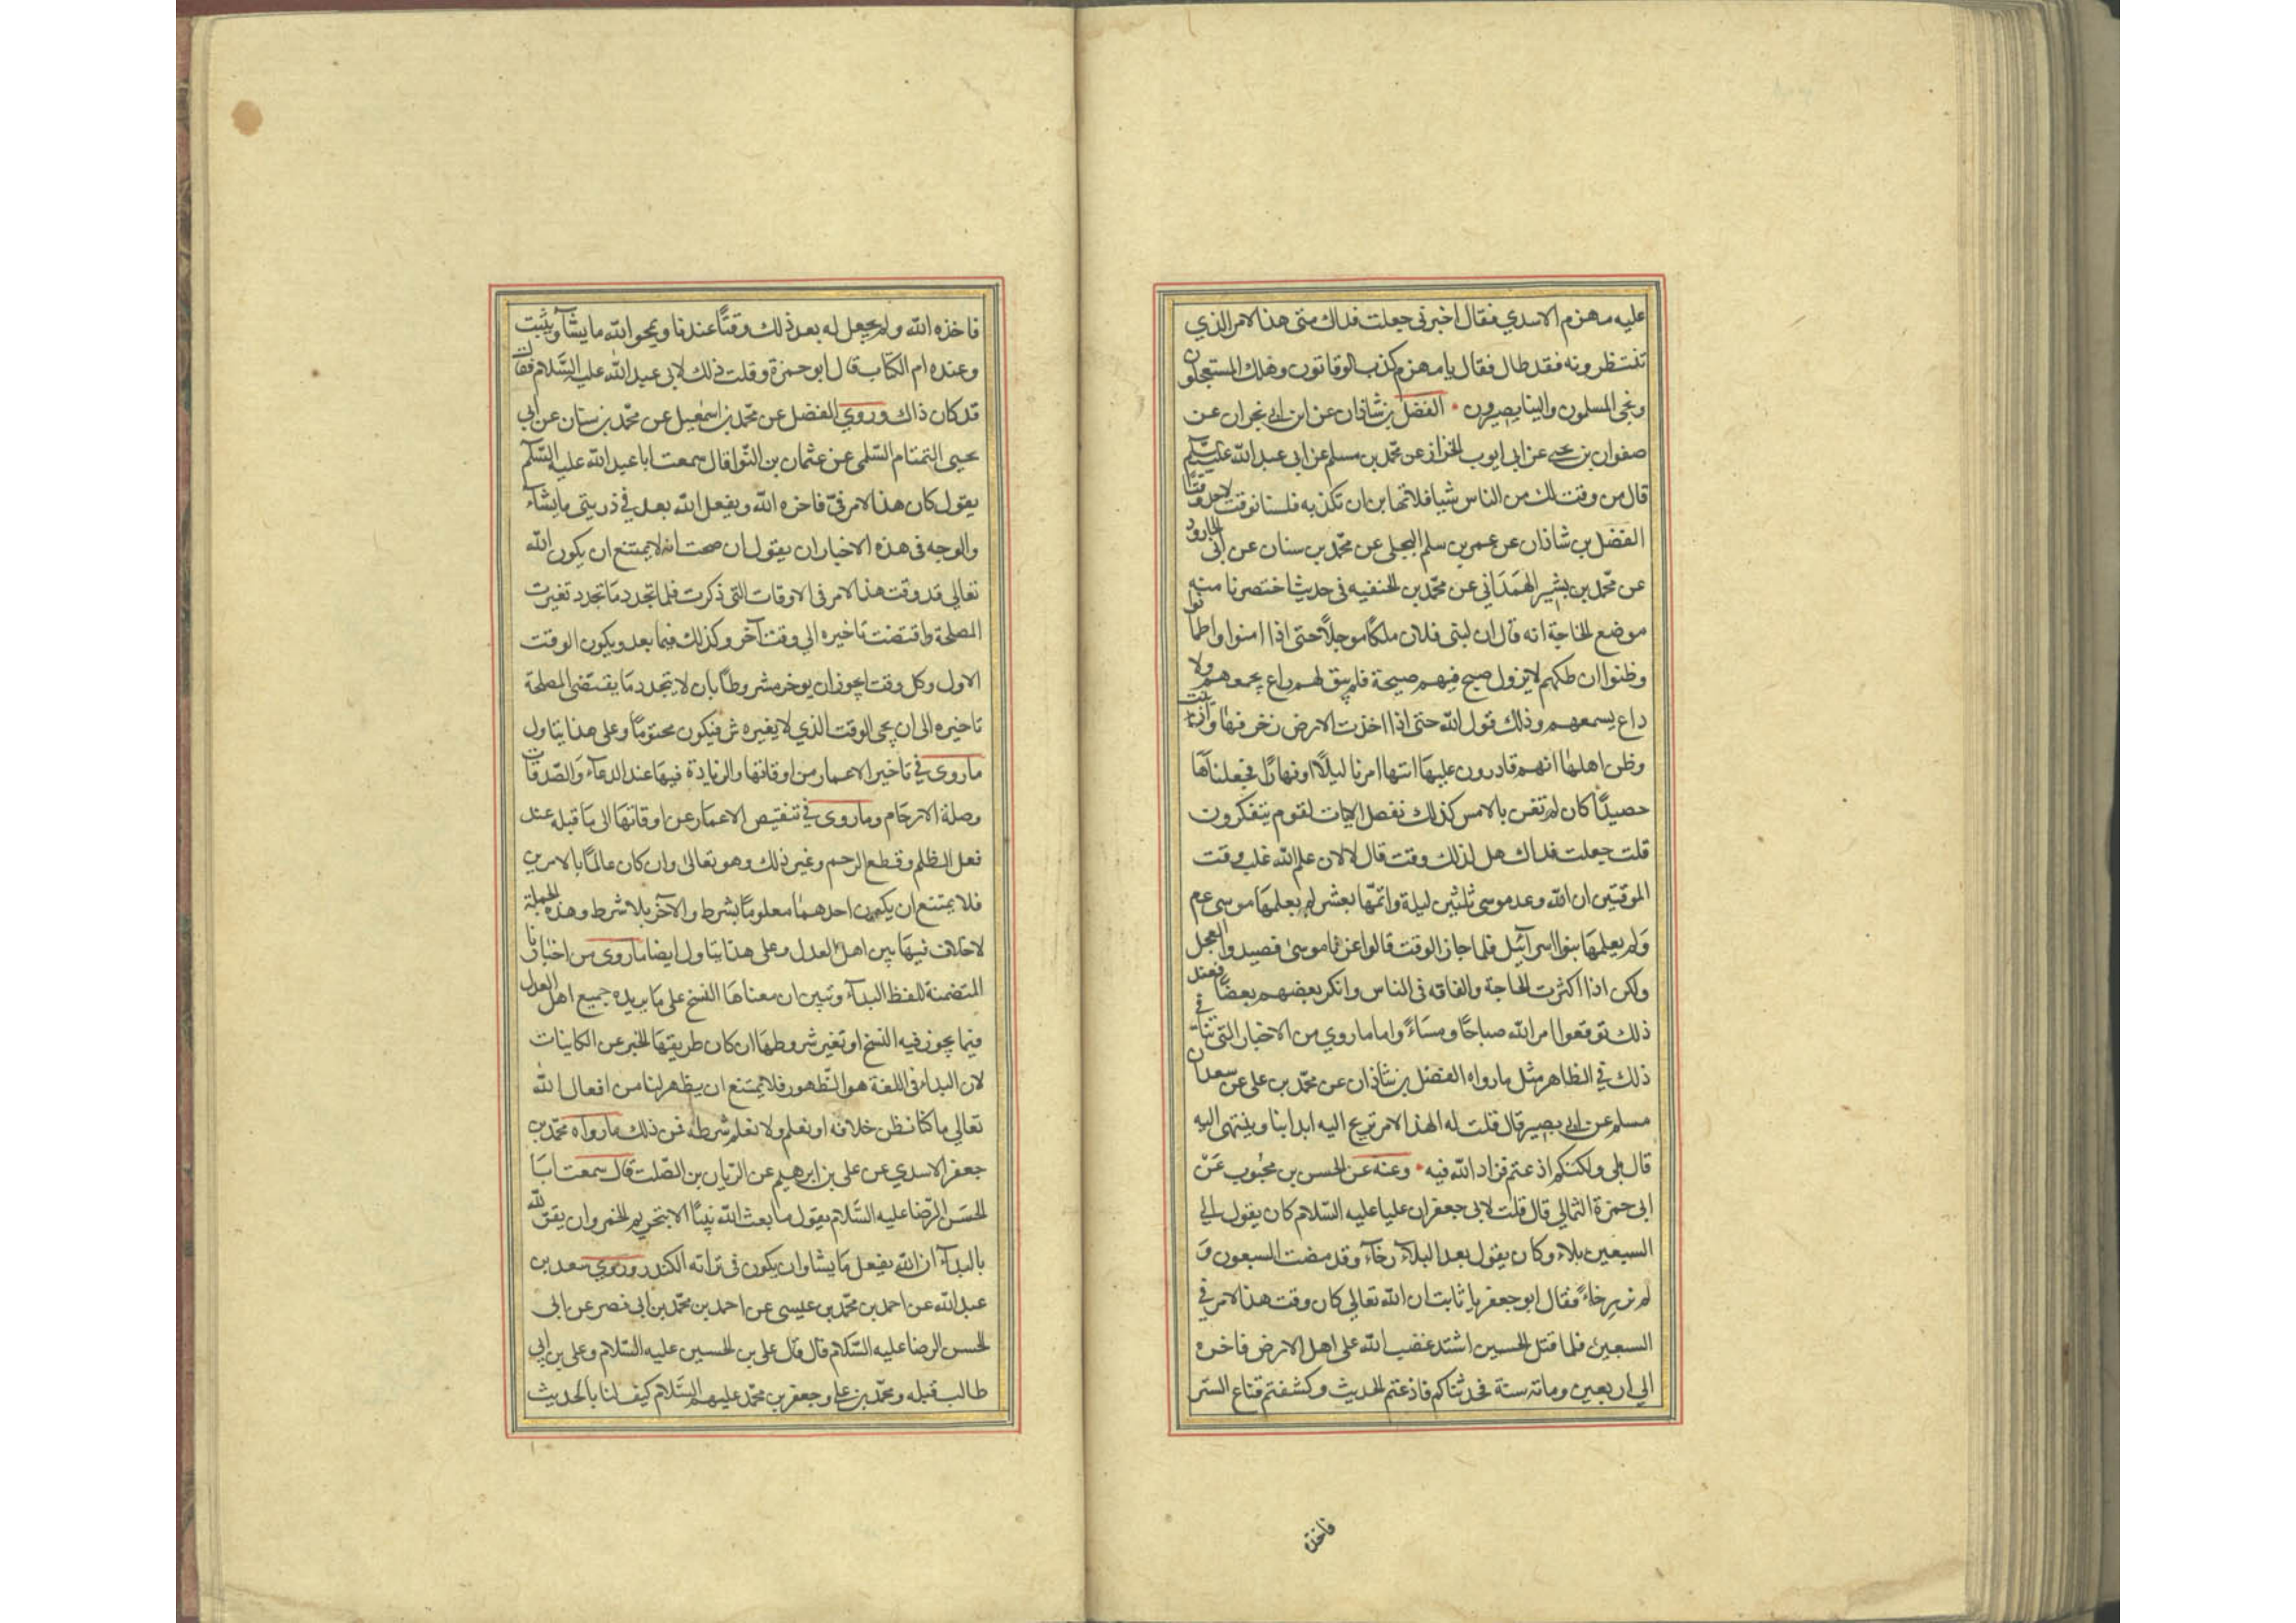 عليه مهزم الاسدي فقال اخبرني جعلت فداك متى هذا الامر الذي
تنتظرونه فقد طال فقال يا مهزم كذب الوقاتون وهلك المستعجلون
ونجى المسلمون والينا يصيرون الفضل بن شاذان عن ابن ابي نجران عن
صفوان بن يحيى عن ابي ايوب الخزاز عن محمد بن مسلم عن ابي عبد الله عليه السلم
قال من وقت لك من الناس شيا فلا تهابن ان تكذبه فلسنا نوقت لاحد وقتا
الفضل بن شاذان عن عمر بن سلم البجلي عن محمد بن سنان عن ابي الجارود
عن محمد بن بشير الهمداني عن محمد بن الحنفيه في حديث اختصرنا منه
موضع الحاجة انه قال ان لبني فلان ملكا موجلا حتى اذا امنوا واطمأنوا
وظنوا ان ملكهم لا يزول صيح فيهم صيحة فلم يبق لهم راع يجمعهم ولا
داع يسمعهم وذلك قول الله حتى اذا اخذت الارض زخرفها وازينت
وظن اهلها انهم قادرون عليها اتتها امرنا ليلا او نهارا فجعلناها
حصيدا كان لم تغن بالامس كذلك نفصل الايات لقوم يتفكرون
قلت جعلت فداك هل لذلك وقت قال لا لان علم الله غلب وقت
الموقتين ان الله وعد موسى ثلثين ليلة واتمها بعشر لم يعلمها موسى عم
ولم يعلمها بنوا اسرآئيل فلما جاز الوقت قالوا غرنا موسى فصيدوا العجل
ولكن اذا اكثرت الحاجة والفاقه في الناس وانكر بعضهم بعضا فعند
ذلك توقعوا امر الله صباحا ومساء واما ما روي من الاخبار التي تنافي
ذلك في الظاهر مثل ما رواه الفضل بن شاذان عن محمد بن علي عن سعدان
مسلم عن ابي بصير قال قلت له الهذا الامر تريح اليه ابداننا وينتهي اليه
قال بلى ولكنكم اذعتم فزاد الله فيه وعنه عن الحسن بن محبوب عن
ابي حمزة الثمالي قال قلت لابي جعفر ان عليا عليه السلام كان يقول الى
السبعين بلاء وكان يقول بعد البلآء رخآء وقد مضت السبعون و
لم نر رخاء فقال ابو جعفر يا ثابت ان الله تعالي كان وقت هذا الامر في
السبعين فلما قتل الحسين اشتد غضب الله على اهل الارض فاخره
الي اربعين وماته سنة فحدثناكم فاذعتم الحديث وكشفتم قناع الستر
فاخذه
فاخذه الله ولم يجعل له بعد ذلك وقتا عندنا ويمحو الله ما يشآء ويثبت
وعنده ام الكتاب قال ابو حمزة وقلت ذلك لابي عبد الله عليه السلام فقال
قد كان ذاك وروي الفضل عن محمد بن اسمعيل عن محمد بن سنان عن ابي
يحيى التمتام السلمي عن عثمان بن النوا قال سمعت ابا عبد الله عليه السلم
يقول كان هذا الامر في فاخره الله ويفعل الله بعد في ذريتي ما يشآء
والوجه في هذه الاخبار ان يقول ان صحت انه لا يمتنع ان يكون الله
تعالي قد وقت هذا الامر في الاوقات التي ذكرت فلما تجدد ما تجدد تغيرت
المصلحة واقتضت تاخيره الي وقت آخر وكذلك فيما بعد ويكون الوقت
الاول وكل وقت يجوز ان يوخر مشروطا بان لا يتجدد ما يقتضي المصلحة
تاخيره الى ان يجى الوقت الذي لا يغيره ش فيكون محتوما وعلى هذا يتاول
ما روى في تاخير الاعمار من اوقاتها والزيادة فيها عند الدعآء والصدقات
وصلة الارحام وما روى في تنقيص الاعمار عن اوقاتها الى ما قبله عند
فعل الظلم وقطع الرحم وغير ذلك وهو تعالى وان كان عالما بالامرين
فلا يمتنع ان يكون احدهما معلوما بشرط والآخر بلا شرط وهذه الجملة
لا خلاف فيها بين اهل العدل وعلى هذا يتاول ايضا ما روى من اخبارنا
المتضمنة للفظ البدآء وتبين ان معناها النسخ على ما يريده جميع اهل العدل
فيما يجوز فيه النسخ او تغير شروطها ان كان طريقها الخبر عن الكاينات
لان البداء في اللغة هو الظهور فلا يمتنع ان يظهر لنا من افعال الله
تعالي ما كنا نظن خلافه او نعلم ولا نعلم شرطه فمن ذلك ما رواه محمد بن
جعفر الاسدي عن علي بن ابرهيم عن الريان بن الصلت قال سمعت ابا
الحسن الرضا عليه السلام يقول ما بعث الله نبيا الا بتحريم الخمر وان يقر لله
بالبدآء ان الله يفعل ما يشا وان يكون في تراثه الكندر وروي سعد بن
عبد الله عن احمد بن محمد بن عيسى عن احمد بن محمد بن ابي نصر عن ابي
الحسن الرضا عليه السلام قال قال علي بن الحسين عليه السلام وعلي بن ابي
طالب قبله ومحمد بن علي وجعفر بن محمد عليهم السلام كيف لنا بالحديث